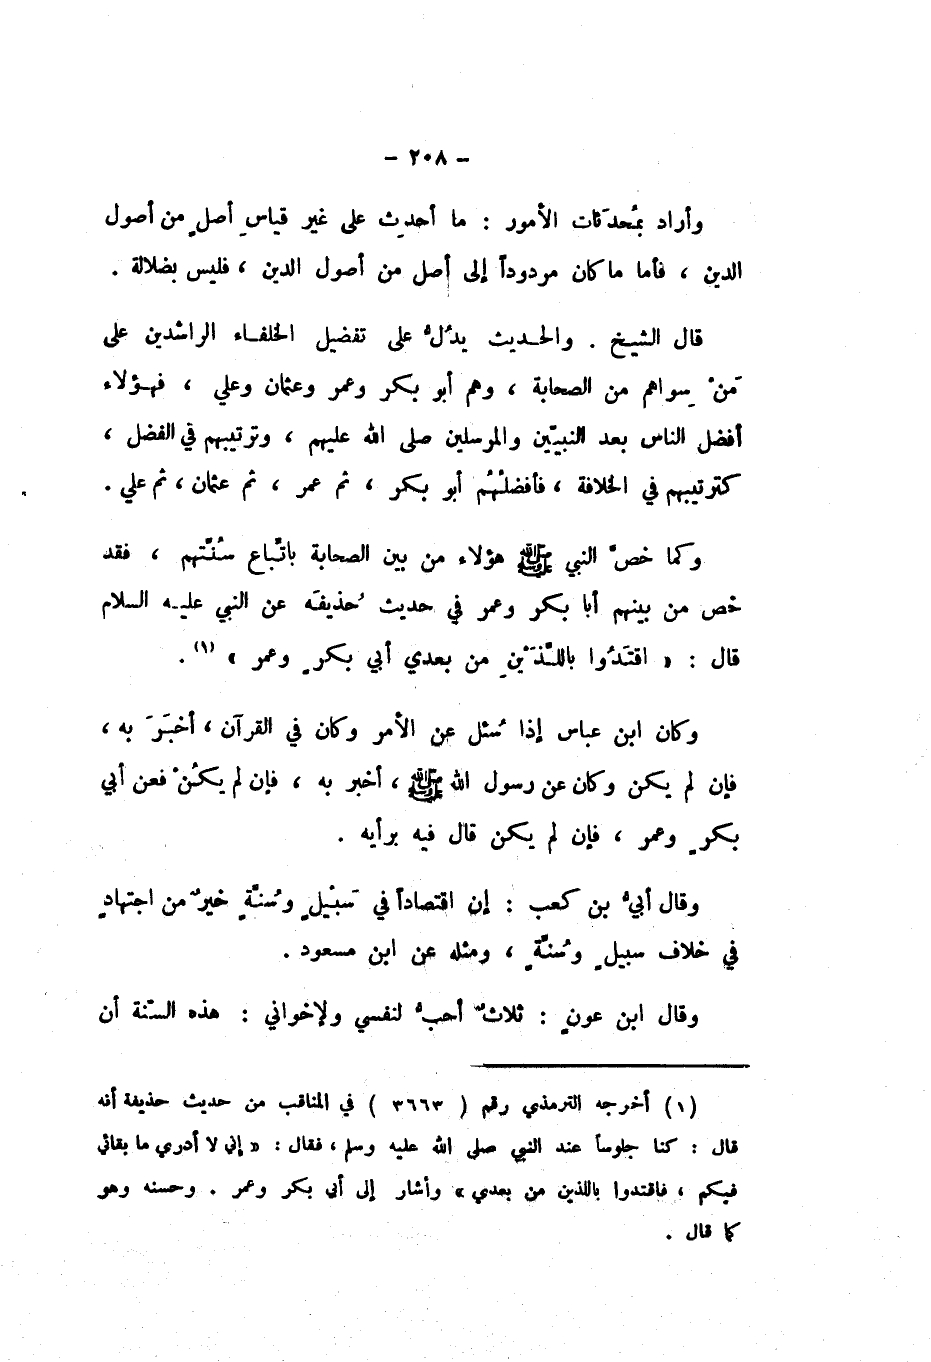 - ٢٠٨ -
وأراد بمُحدَثات الأمور : ما أحدِث على غير قياسِ أصلٍ من أصول
الدين ، فأما ما كان مردوداً إلى أصل من أصول الدين ، فليس بضلالة .
قال الشيخ . والحديث يدُلُّ على تفضيل الخلفاء الراشدين على
مَنْ سِواهم من الصحابة ، وهم أبو بكر وعمر وعثمان وعلي ، فهؤلاء
أفضل الناس بعد النبيّين والمرسلين صلى الله عليهم ، وترتيبهم في الفضل ،
كترتيبهم في الخلافة ، فأفضلُهُم أبو بكر ، ثم عمر ، ثم عثمان ، ثم علي .
وكما خصَّ النبي ﷺ هؤلاء من بين الصحابة باتِّباع سُنَّتهم ، فقد
خص من بينهم أبا بكر وعمر في حديث حُذيفَه عن النبي عليه السلام
قال : « اقتَدُوا باللَّذَيْنِ من بعدي أبي بكرٍ وعمر » (١) .
وكان ابن عباس إذا سُئل عن الأمر وكان في القرآن ، أخبَرَ به ،
فإن لم يكن وكان عن رسول الله ﷺ ، أخبر به ، فإن لم يكُنْ فعن أبي
بكرٍ وعمر ، فإن لم يكن قال فيه برأيه .
وقال أبيُّ بن كعب : إن اقتصاداً في سَبيْلٍ وسُنَّةٍ خيرٌ من اجتهادٍ
في خلاف سبيلٍ وسُنَّةٍ ، ومثله عن ابن مسعود .
وقال ابن عونٍ : ثلاثٌ أحبُّ لنفسي ولإخواني : هذه السنّة أن
(١) أخرجه الترمذي رقم ( ٣٦٦٣ ) في المناقب من حديث حذيفة أنه
قال : كنا جلوساً عند النبي صلى الله عليه وسلم ، فقال : « إني لا أدري ما بقائي
فيكم ، فاقتدوا باللذين من بعدي » وأشار إلى أبي بكر وعمر . وحسنه وهو
كما قال .